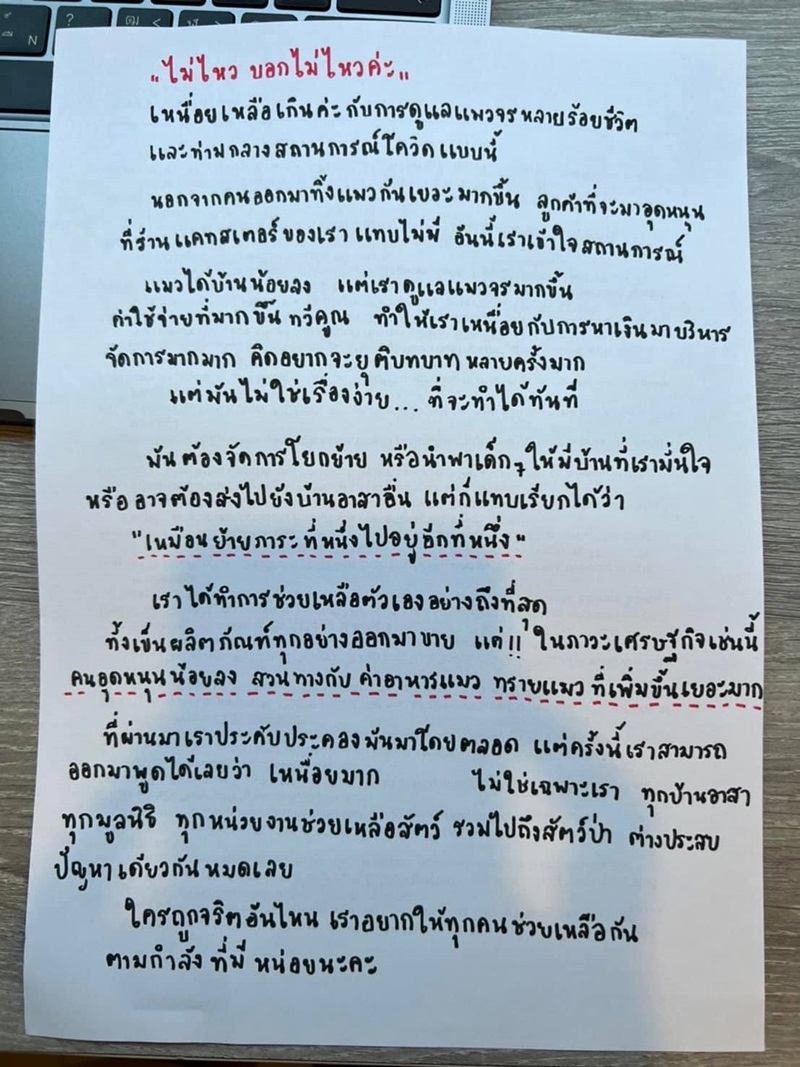 "ไม่ไหว บอกไม่ไหวค่ะ"
เหนื่อยเหลือเกินค่ะ กับการดูแลแมวจรหลายร้อยชีวิต
และท่ามกลางสถานการณ์โควิดแบบนี้
นอกจากคนออกมาทิ้งแมวกันเยอะมากขึ้น ลูกค้าที่จะมาอุดหนุน
ที่ร้านแคทสเตอร์ของเราแทบไม่มี อันนี้เราเข้าใจสถานการณ์
แมวได้บ้านน้อยลง แต่เราดูแลแมวจรมากขึ้น
ค่าใช้จ่ายที่มากขึ้น ทวีคูณ ทำให้เราเหนื่อยกับการหาเงินมาบริหาร
จัดการมากมาก คิดอยากจะยุติบทบาทหลายครั้งมาก
แต่มันไม่ใช่เรื่องง่าย... ที่จะทำได้ทันที
มันต้องจัดการโยกย้าย หรือนำพาเด็กๆ ให้มีบ้านที่เรามั่นใจ
หรืออาจต้องส่งไปยังบ้านอาสาอื่น แต่ก็แทบเรียกได้ว่า
"เหมือนย้ายภาระที่หนึ่งไปอยู่อีกที่หนึ่ง"
เราได้ทำการช่วยเหลือตัวเองอย่างถึงที่สุด
ทั้งเข็นผลิตภัณฑ์ทุกอย่างออกมาขาย แต่!! ในภาวะเศรษฐกิจเช่นนี้
คนอุดหนุนน้อยลง สวนทางกับ ค่าอาหารแมว ทรายแมว ที่เพิ่มขึ้นเยอะมาก
ที่ผ่านมาเราประคับประคองมันมาโดยตลอด แต่ครั้งนี้เราสามารถ
ออกมาพูดได้เลยว่า เหนื่อยมาก ไม่ใช่เฉพาะเรา ทุกบ้านอาสา
ทุกมูลนิธิ ทุกหน่วยงานช่วยเหลือสัตว์ รวมไปถึงสัตว์ป่า ต่างประสบ
ปัญหาเดียวกันหมดเลย
ใครถูกจริตอันไหน เราอยากให้ทุกคนช่วยเหลือกัน
ตามกำลังที่มี หน่อยนะคะ